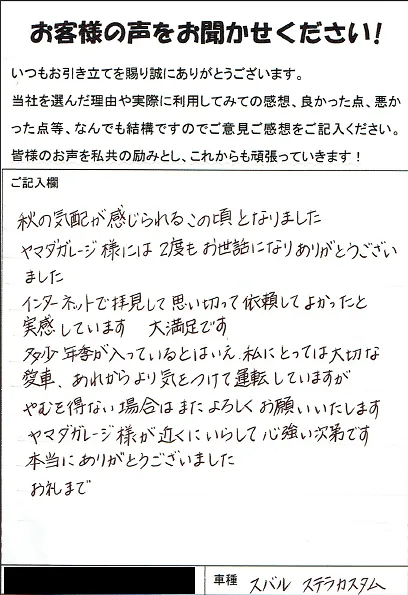 お客様の声をお聞かせください!
いつもお引き立てを賜り誠にありがとうございます。
当社を選んだ理由や実際に利用してみての感想、良かった点、悪か
った点等、なんでも結構ですのでご意見ご感想をご記入ください。
皆様のお声を私共の励みとし、これからも頑張っていきます！
ご記入欄
秋の気配が感じられるこの頃となりました
ヤマダガレージ様には2度もお世話になりありがとうござい
ました
インターネットで拝見して思い切って依頼してよかったと
実感しています 大満足です
多少年季が入っているとはいえ、私にとっては大切な
愛車、あれからより気をつけて運転していますが
やむを得ない場合はまたよろしくお願いいたします
ヤマダガレージ様が近くにいらして心強い次第です
本当にありがとうございました
お礼まで
車種 スバル ステラカスタム